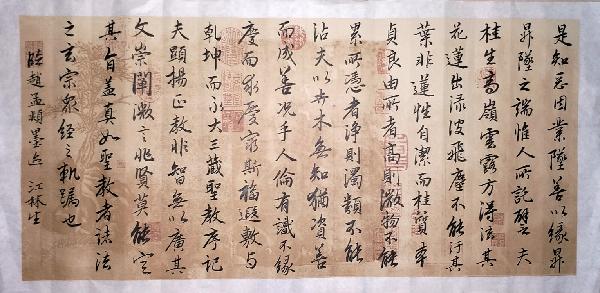 是知惡因業墜善以緣昇
昇墜之端惟人所託譬夫
桂生高嶺雲露方得泫其
花蓮出淥波飛塵不能汙其
葉非蓮性自潔而桂質本
貞良由所者高則微物不能
累所憑者淨則濁類不能
沾夫以卉木無知猶資善
而成善況乎人倫有識不緣
慶而求慶寧斯福遐敷与
乾坤而永大三藏聖教序記
夫顯揚正教非智無以廣其
文崇闡微言非賢莫能定
其旨蓋真如聖教者諸法
之玄宗眾經之軌躅也
臨趙孟頫墨迹 江林生